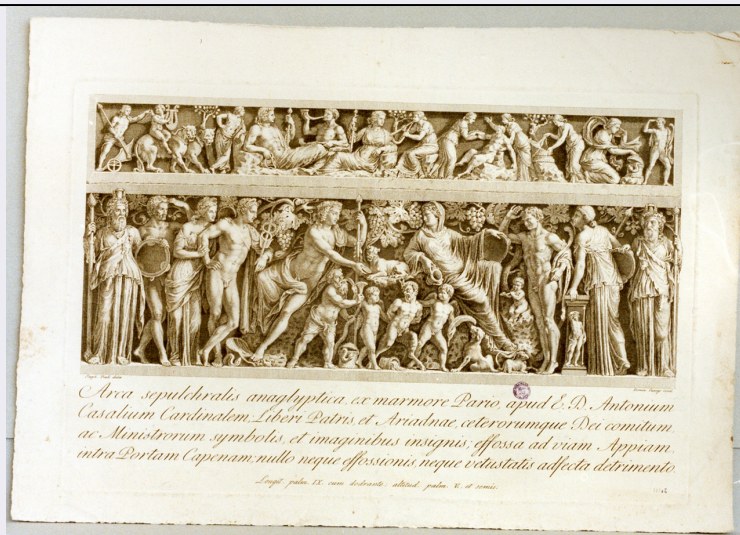 Arca sepulchralis anaglyptica, ex marmore Pario, apud E. D. Antonium
Casalium Cardinalem, Liberi Patris, et Ariadnae, ceterorumque Dei comitum,
ac Ministrorum symbolis, et imaginibus insignis; effossa ad viam Appiam,
intra Portam Capenam; nullo neque effossionis, neque vetustatis adfecta detrimento.
Longit. palm. IX. cum dodrante, altitud. palm. V. et semis.